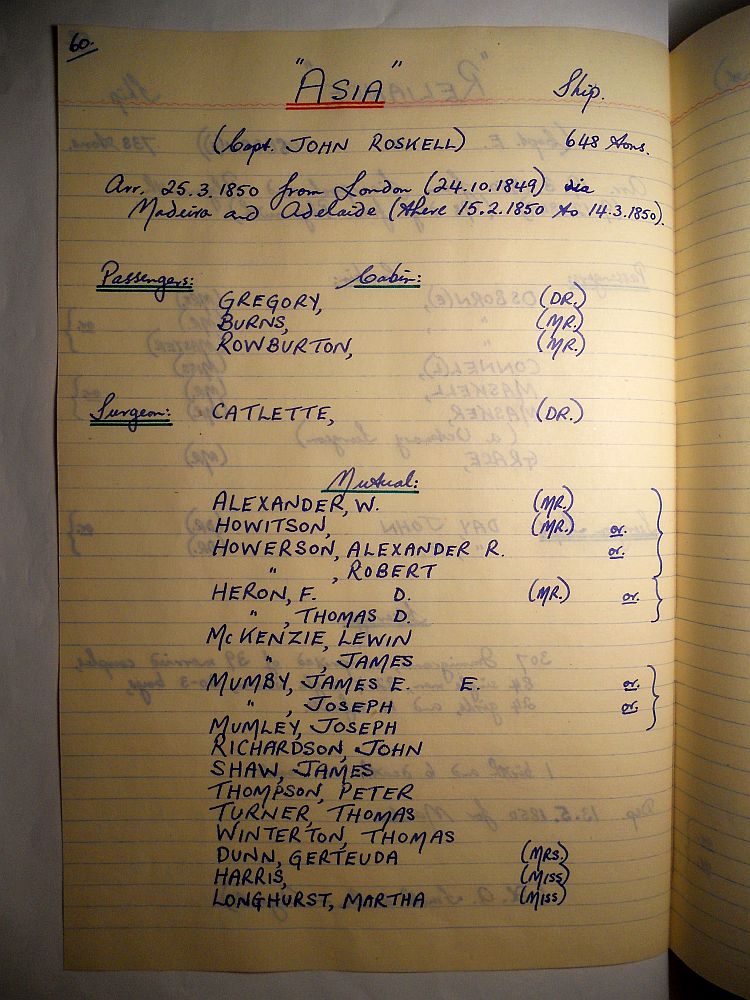 60.
"ASIA" Ship.
(Capt. JOHN ROSKELL) 648 tons.
Arr. 25.3.1850 from London (24.10.1849) via
Madeira and Adelaide (there 15.2.1850 to 14.3.1850).
Passengers: Cabin:
GREGORY, (DR.)
BURNS, (MR.)
ROWBURTON, (MR.)
Surgeon: CATLETTE, (DR.)
Mutual:
ALEXANDER, W. (MR.)
HOWITSON, (MR.) or.
HOWERSON, ALEXANDER R. or.
" , ROBERT
HERON, F. D. (MR.) or.
" , THOMAS D.
McKENZIE, LEWIN
" , JAMES
MUMBY, JAMES E. E. or.
" , JOSEPH or.
MUMLEY, JOSEPH
RICHARDSON, JOHN
SHAW, JAMES
THOMPSON, PETER
TURNER, THOMAS
WINTERTON, THOMAS
DUNN, GERTEUDA (MRS.)
HARRIS, (MISS)
LONGHURST, MARTHA (MISS)